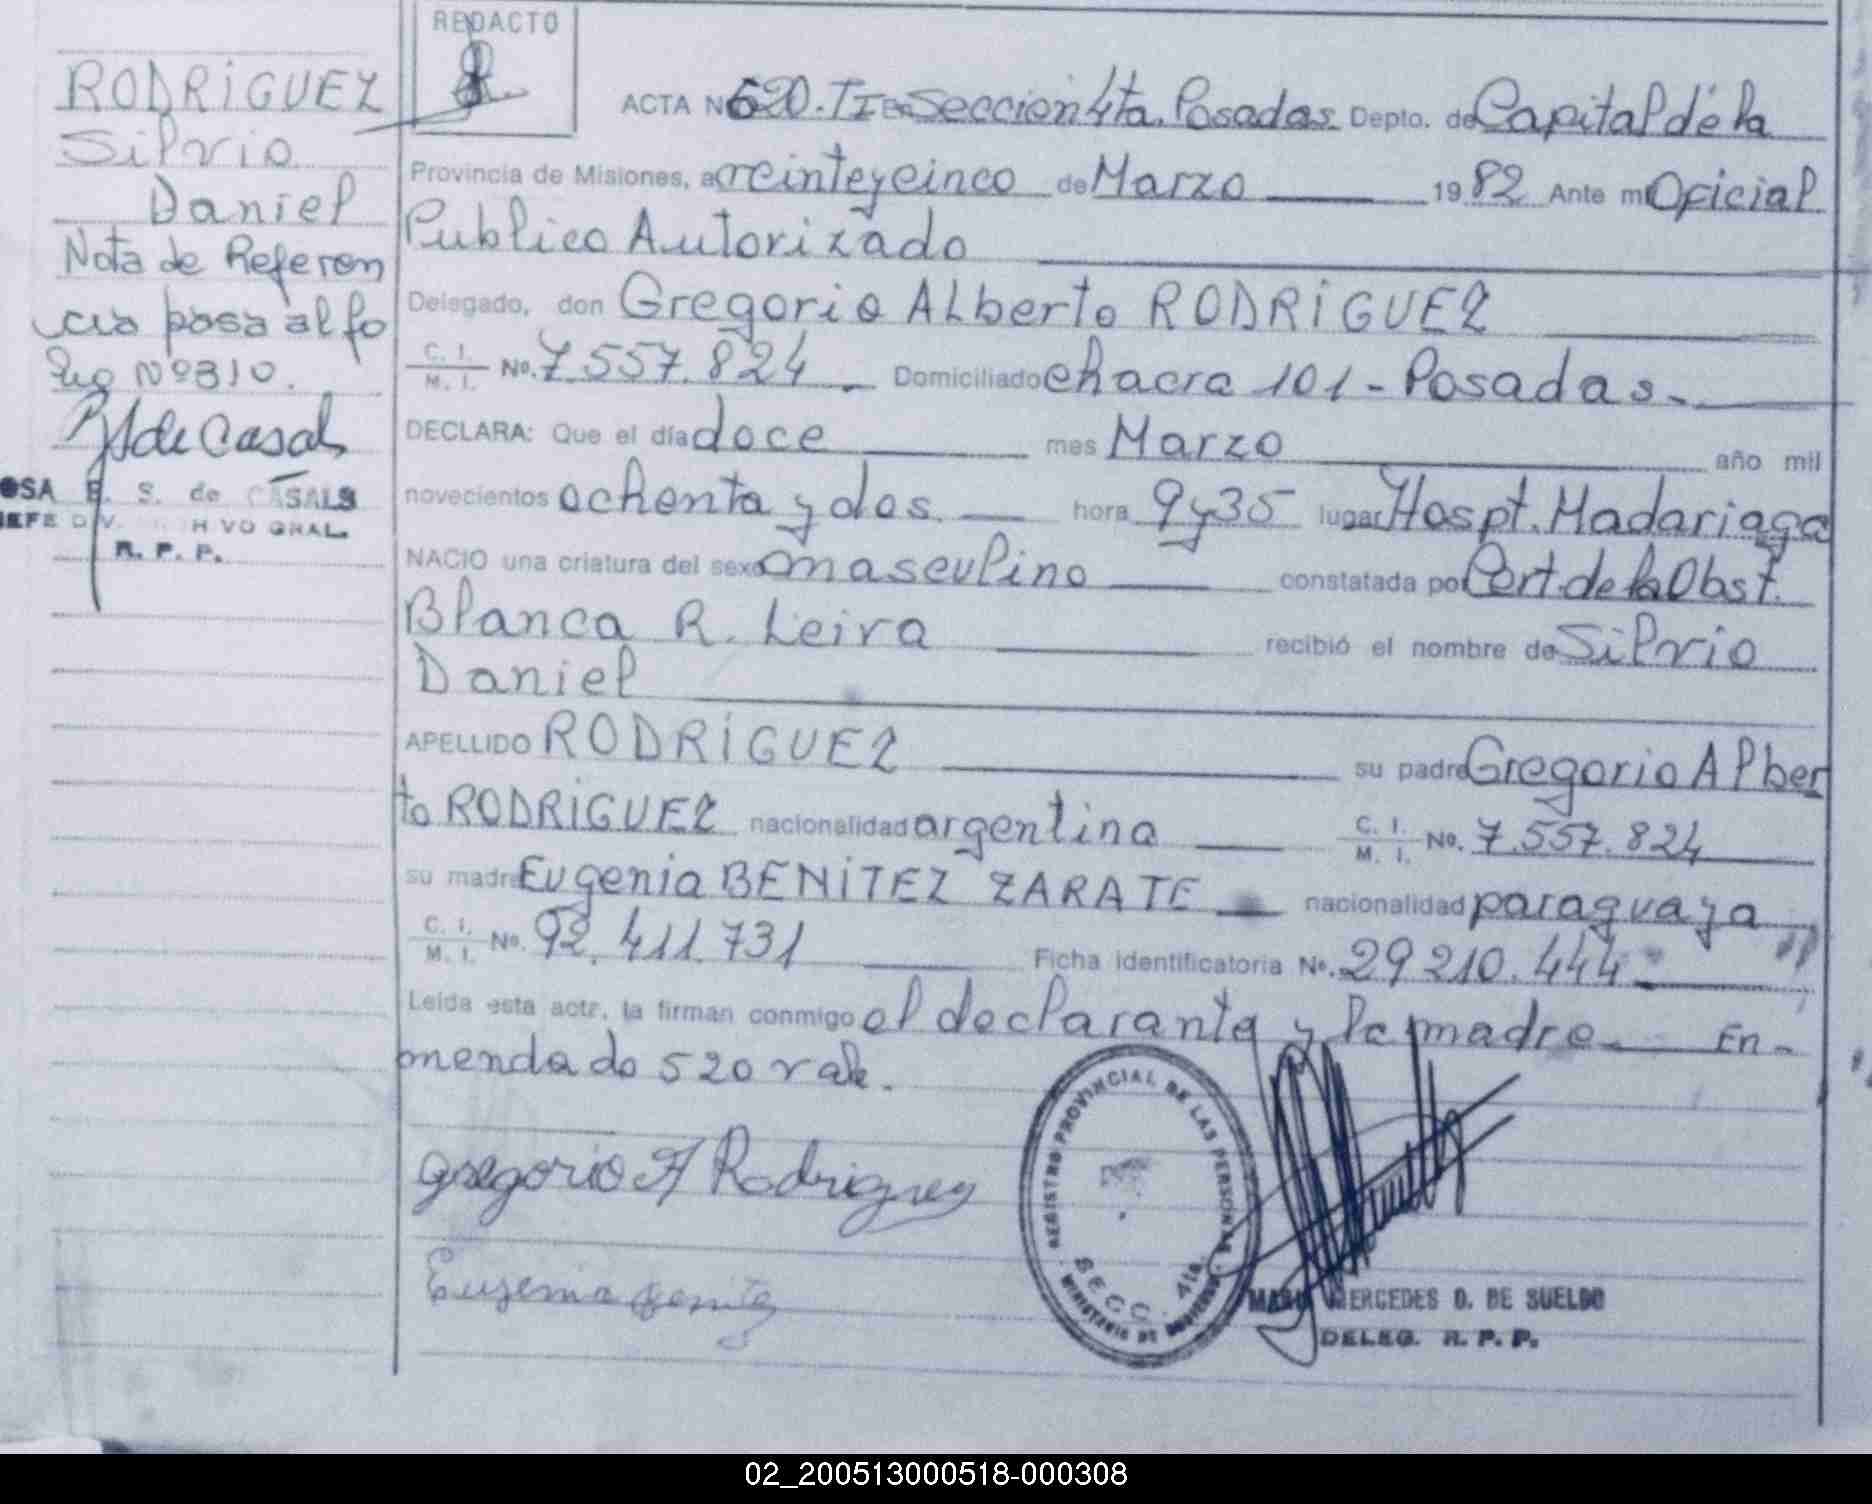 RODRIGUEZ
Silvio
Daniel
Nota de Referen
cia pasa al fo
lio Nº 310.
de Casals
OSA E. S. de CASALS
JEFE DIV. ARCHIVO GRAL.
R. P. P.
REDACTO
ACTA Nº 520. T I En Seccion 4ta. Posadas Depto. de Capital de la
Provincia de Misiones, a veinteycinco de Marzo 1982 Ante mi Oficial
Publico Autorizado
Delegado, don Gregorio Alberto RODRIGUEZ
C. I. M. I. No. 7.557.824 Domiciliado chacra 101 - Posadas.
DECLARA: Que el día doce mes Marzo año mil
novecientos ochenta y dos hora 9 y 35 lugar Hospt. Madariaga
NACIO una criatura del sexo masculino constatada por Cert. de la Obst.
Blanca R. Leiva recibió el nombre de Silvio
Daniel
APELLIDO RODRIGUEZ su padre Gregorio Alber
to RODRIGUEZ nacionalidad argentina C. I. M. I. No. 7.557.824
su madre Eugenia BENITEZ ZARATE nacionalidad paraguaya
C. I. M. I. No. 92.411.731 Ficha Identificatoria No. 29 210.444
Leída esta acta, la firman conmigo el declarante y la madre En-
mendado 520 vale.
gregorio A Rodriguez
Eugenia Benitez
REGISTRO PROVINCIAL DE LAS PERSONAS
SECC. 4ta.
MINISTERIO DE GOBIERNO
MARIA MERCEDES D. DE SUELDO
DELEG. R. P. P.
02_200513000518-000308